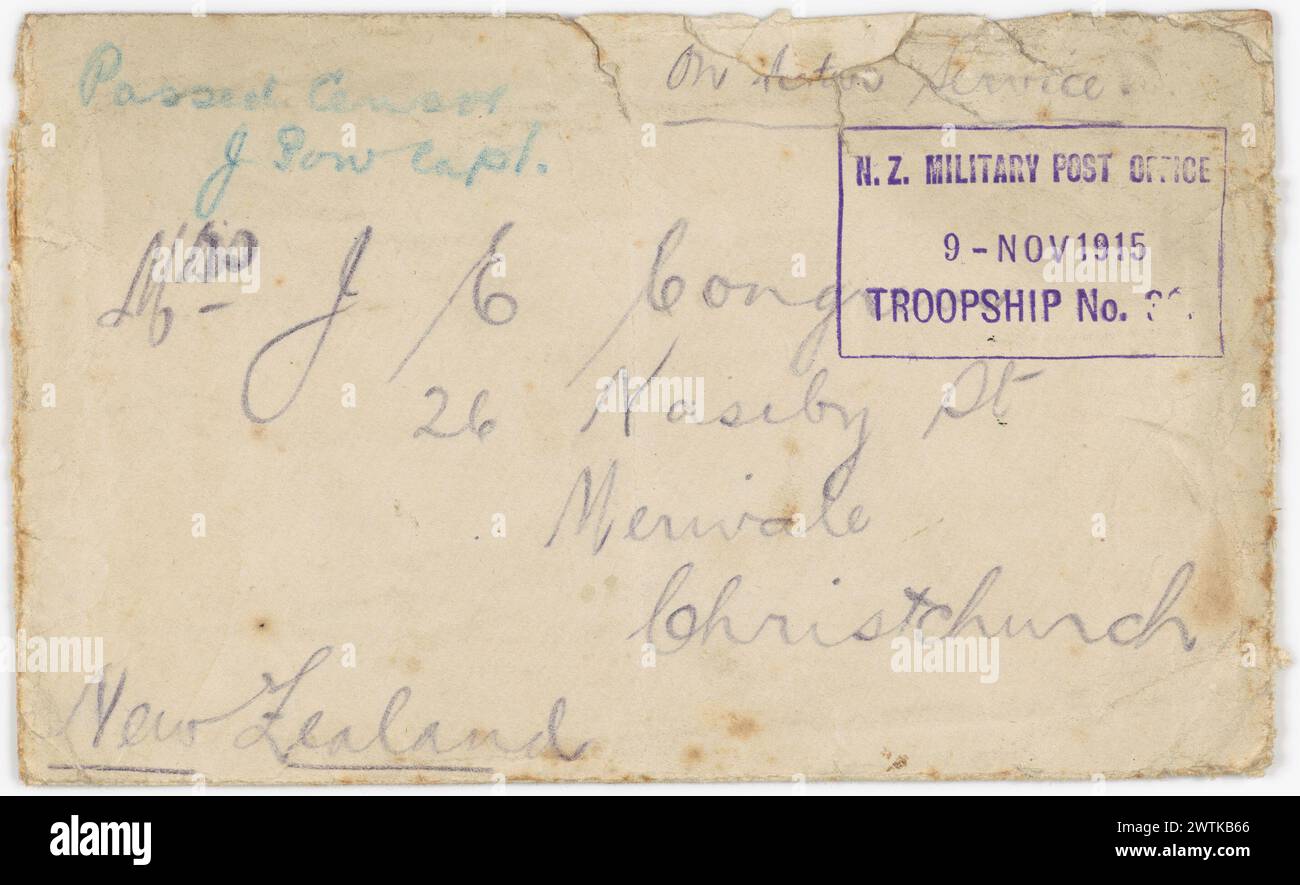 Passed Censor
J Pow Capt.
On Active Service.
N. Z. MILITARY POST OFFICE
9 - NOV 1915
TROOPSHIP No.
Mrs J C
26 Naseby St
Merivale
Christchurch
New Zealand
alamy
Image ID: 2WTKB66
www.alamy.com